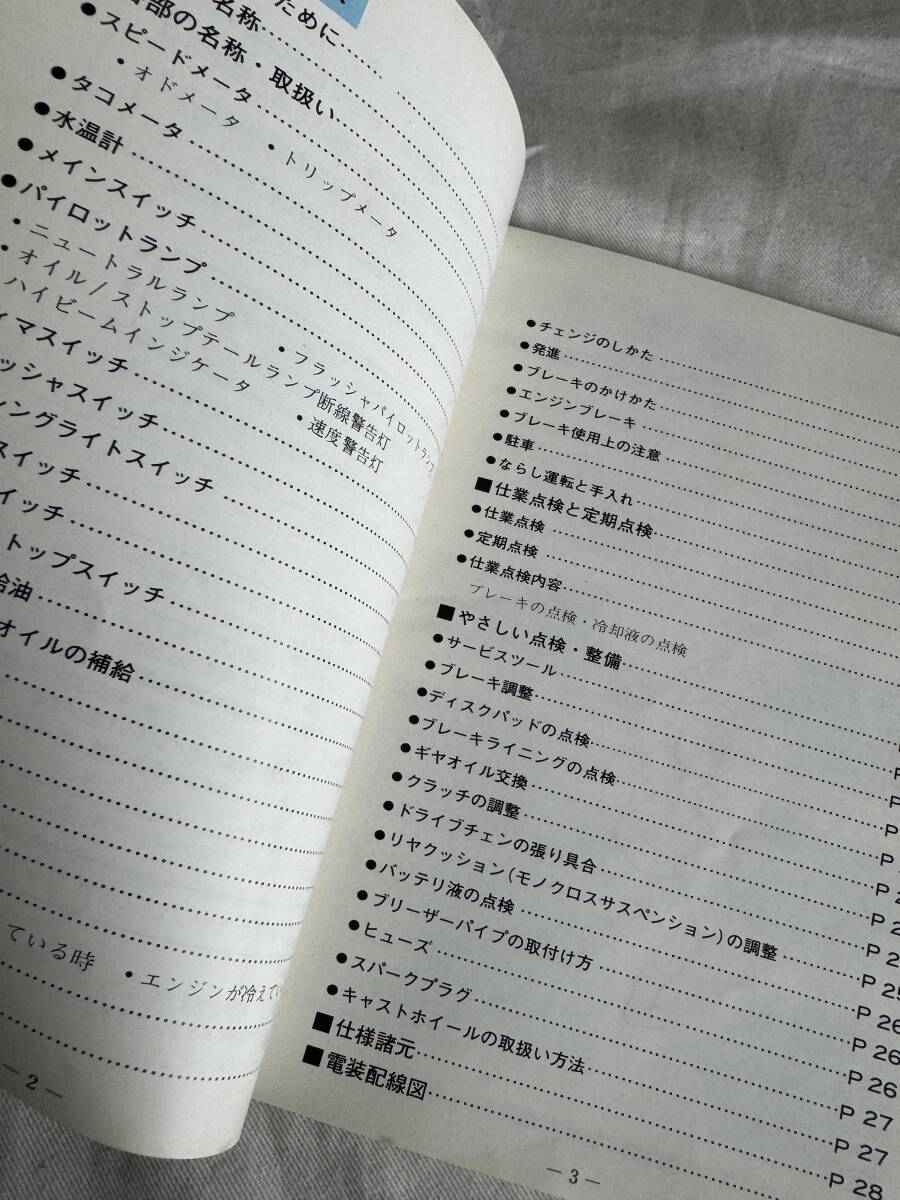 ために
名称
部の名称・取扱い
●スピードメータ
・オドメータ ・トリップメータ
●タコメータ
●水温計
●メインスイッチ
●パイロットランプ
・ニュートラルランプ ・フラッシャパイロットランプ
・オイル/ストップテールランプ断線警告灯
ハイビームインジケータ ・速度警告灯
ィマスイッチ
ッシャスイッチ
ングライトスイッチ
スイッチ
イッチ
トップスイッチ
給油
オイルの補給
ている時 ・エンジンが冷えてい
— 2 —
●チェンジのしかた
●発進
●ブレーキのかけかた
●エンジンブレーキ
●ブレーキ使用上の注意
●駐車
●ならし運転と手入れ
■仕業点検と定期点検
●仕業点検
●定期点検
●仕業点検内容
ブレーキの点検・冷却液の点検
■やさしい点検・整備
●サービスツール
●ブレーキ調整
●ディスクパッドの点検
●ブレーキライニングの点検
●ギヤオイル交換
●クラッチの調整
●ドライブチェンの張り具合
●リヤクッション(モノクロスサスペンション)の調整
●バッテリ液の点検 P 25
●ブリーザーパイプの取付け方 P 26
●ヒューズ P 26
●スパークプラグ P 26
●キャストホイールの取扱い方法 P 27
■仕様諸元 P 27
■電装配線図 P 28
— 3 —